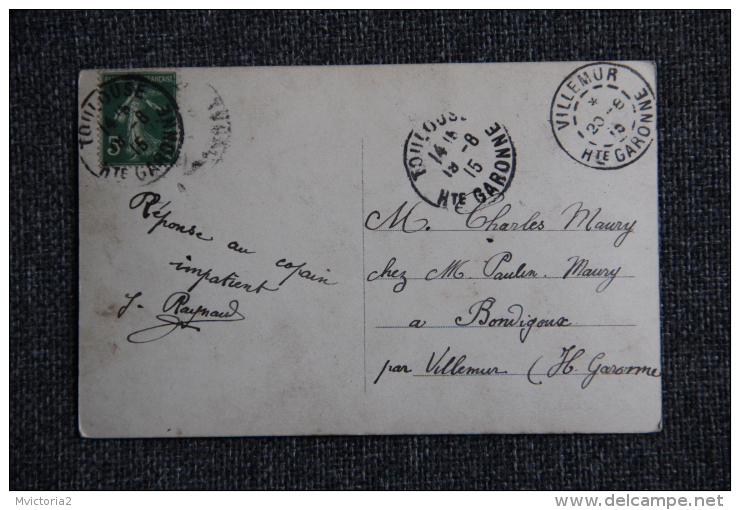 TOULOUSE
Hte GARONNE
5
TOULOUSE
14
18 - 8
15
Hte GARONNE
VILLEMUR
*
20 - 8
15
Hte GARONNE
Réponse au copain
impatient
J. Raynaud
M. Charles Maury
chez M Paulin Maury
a Bondigoux
par Villemur (H. Garonne
Mvictoria2
delcampe.net